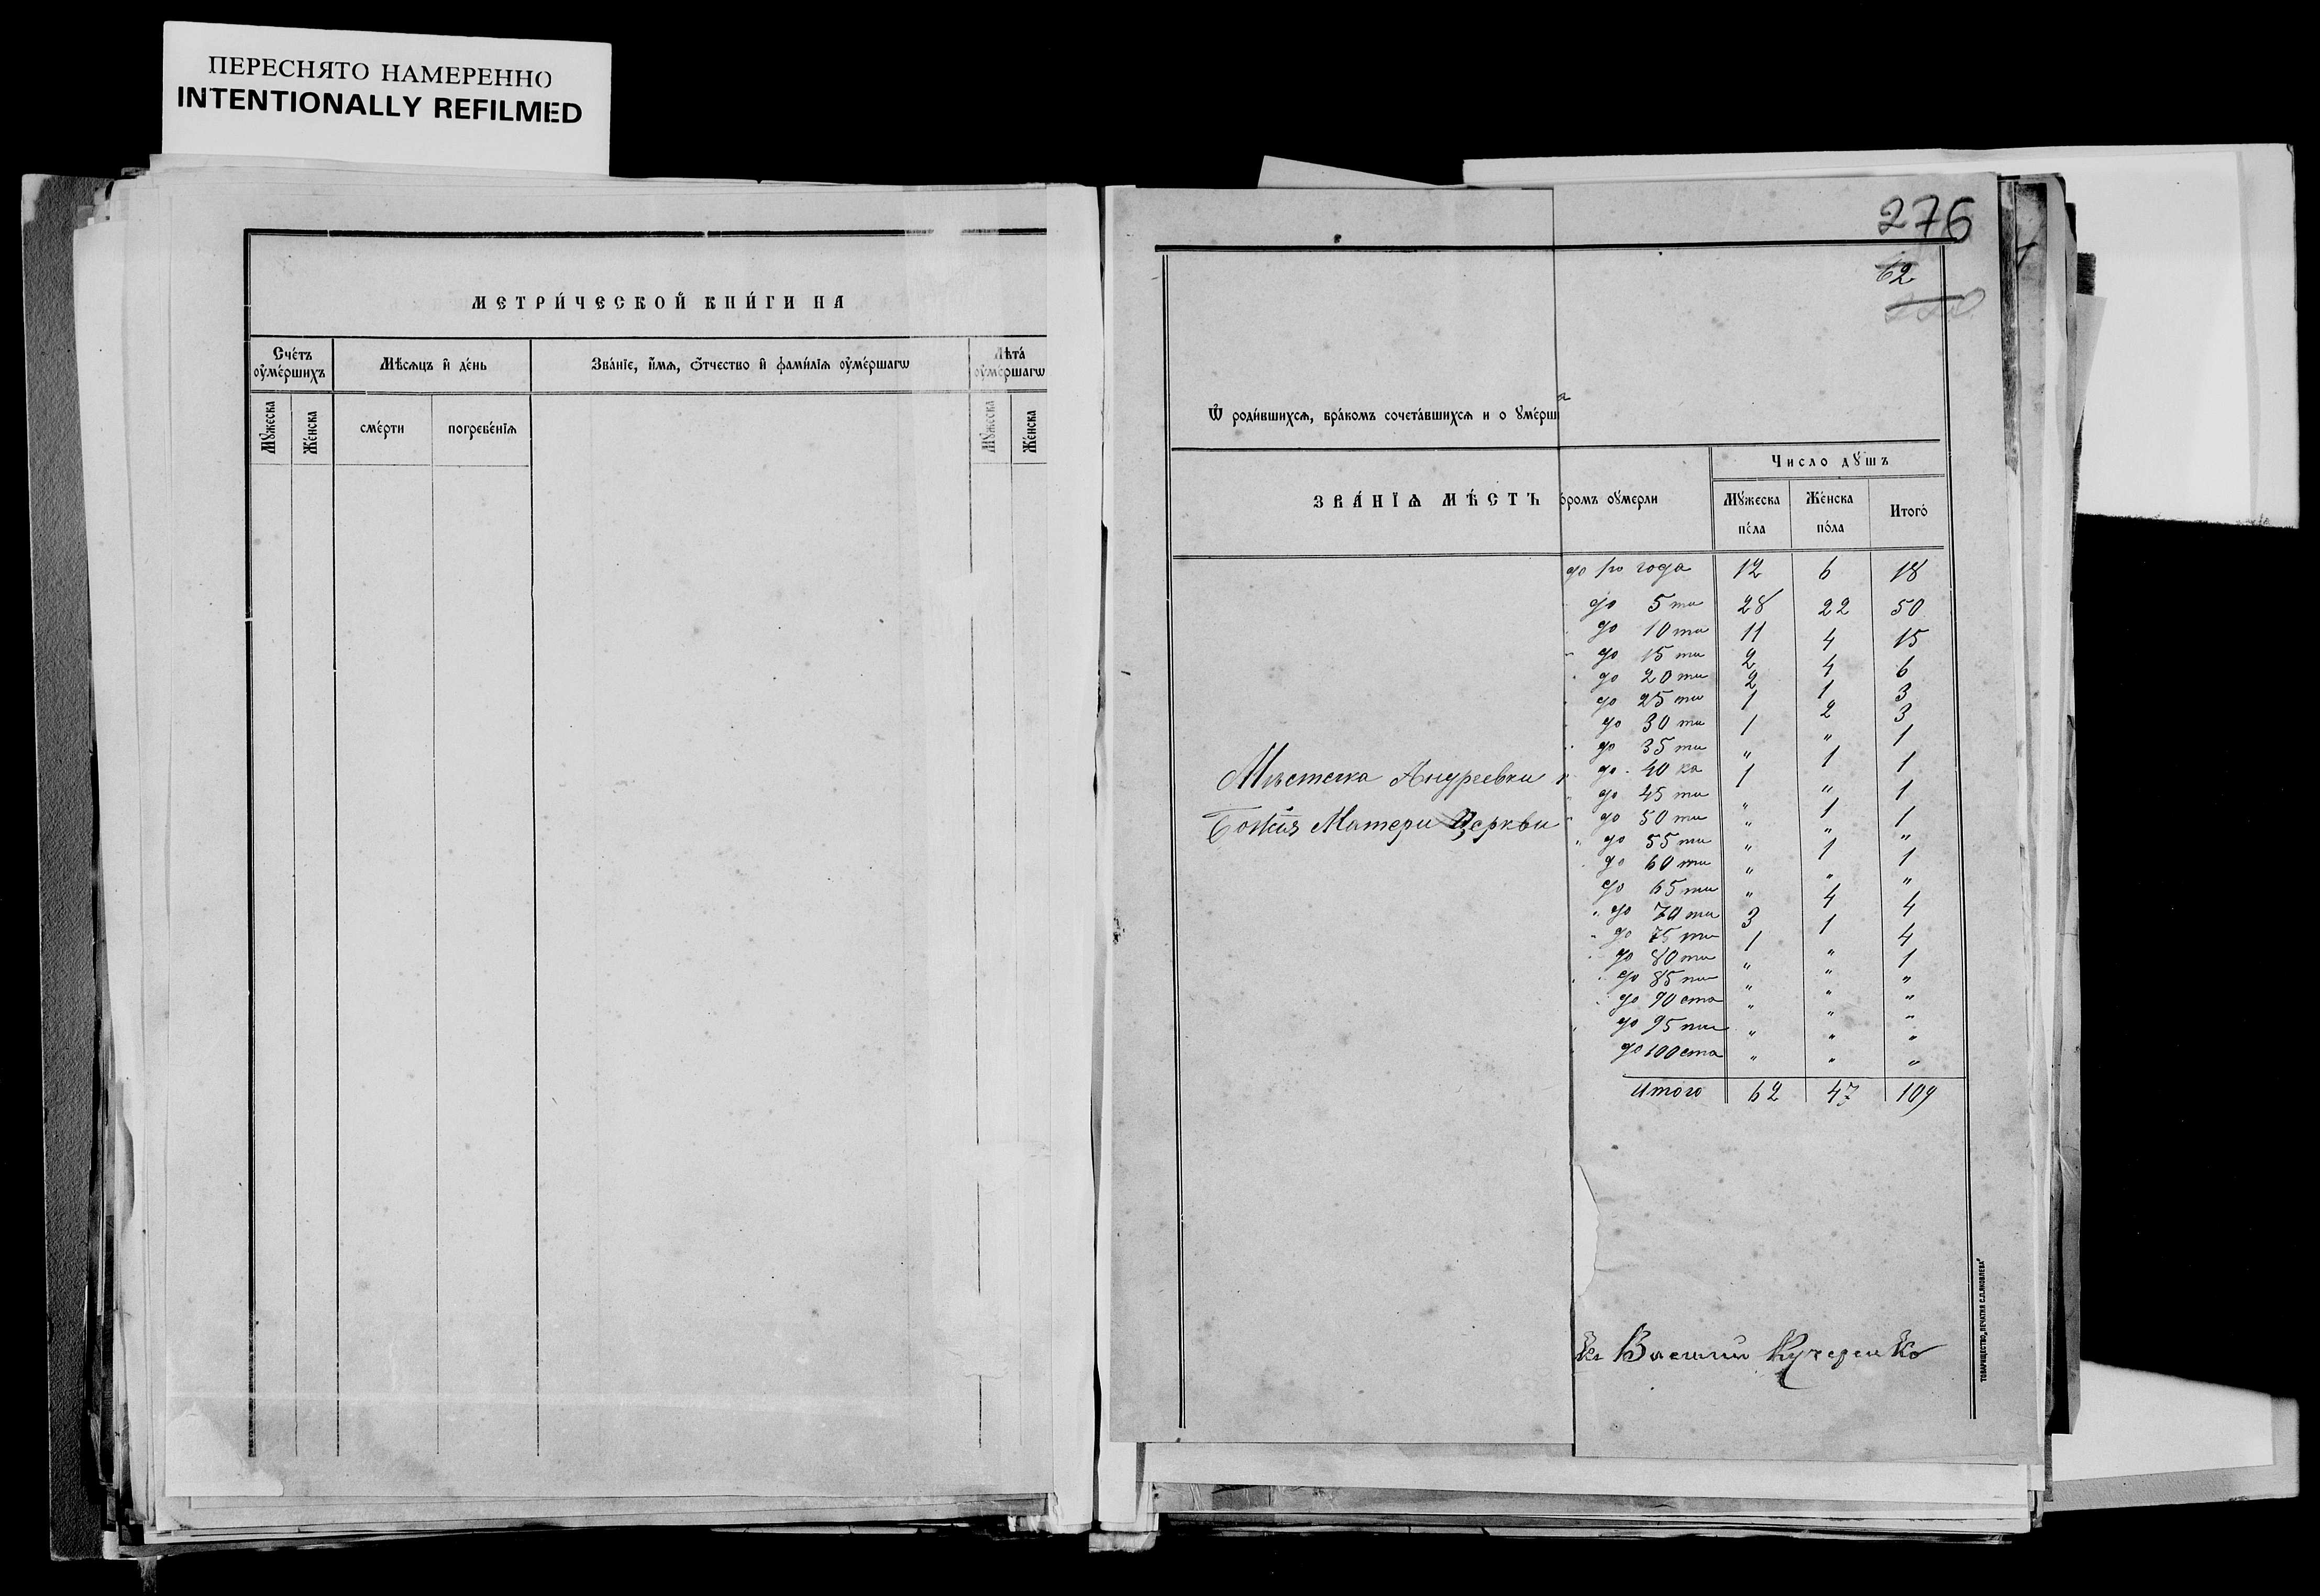 ПЕРЕСНЯТО НАМЕРЕННО
INTENTIONALLY REFILMED
МЕТРИ́ЧЕСКОЙ КНИ́ГИ НА
Сче́тъ оу҆ме́ршихъ
Мѣ́сѧцъ и҆ де́нь
Зва́нїе, и҆́мѧ, ѻ҆́тчество и҆ фами́лїѧ оу҆ме́ршагѡ
Лѣта́ оу҆ме́ршагѡ
Мꙋ́жеска
Же́нска
сме́рти
погребе́нїѧ
Мꙋ́жеска
Же́нска
276
62
Ѿ роди́вшихсѧ, бра́комъ сочета́вшихсѧ и о ꙋ҆ме́рш
ЗВА́НЇѦ МѢ́СТЪ
о́ромъ оу҆мерли
Число дꙋ́шъ
Мꙋ́жеска по́ла
Же́нска по́ла
Итого̀
до 1го года 12 6 18
до 5ти 28 22 50
до 10ти 11 4 15
до 15ти 2 4 6
до 20ти 2 1 3
до 25ти 1 2 3
до 30ти 1 " 1
до 35ти " 1 1
до 40ка 1 " 1
до 45ти " 1 1
до 50ти " " "
до 55ти " 1 1
до 60ти " " "
до 65ти " 4 4
до 70ти 3 1 4
до 75ти 1 " 1
до 80ти " " "
до 85ти " " "
до 90ста " " "
до 95ти " " "
до 100ста " " "
Итого 62 47 109
Мѣстечка Андреевки
Божія Матери Церкви
Василий Кучеренко
ТОВАРИЩЕСТВО „ПЕЧАТНЯ С.П.ЯКОВЛЕВА"